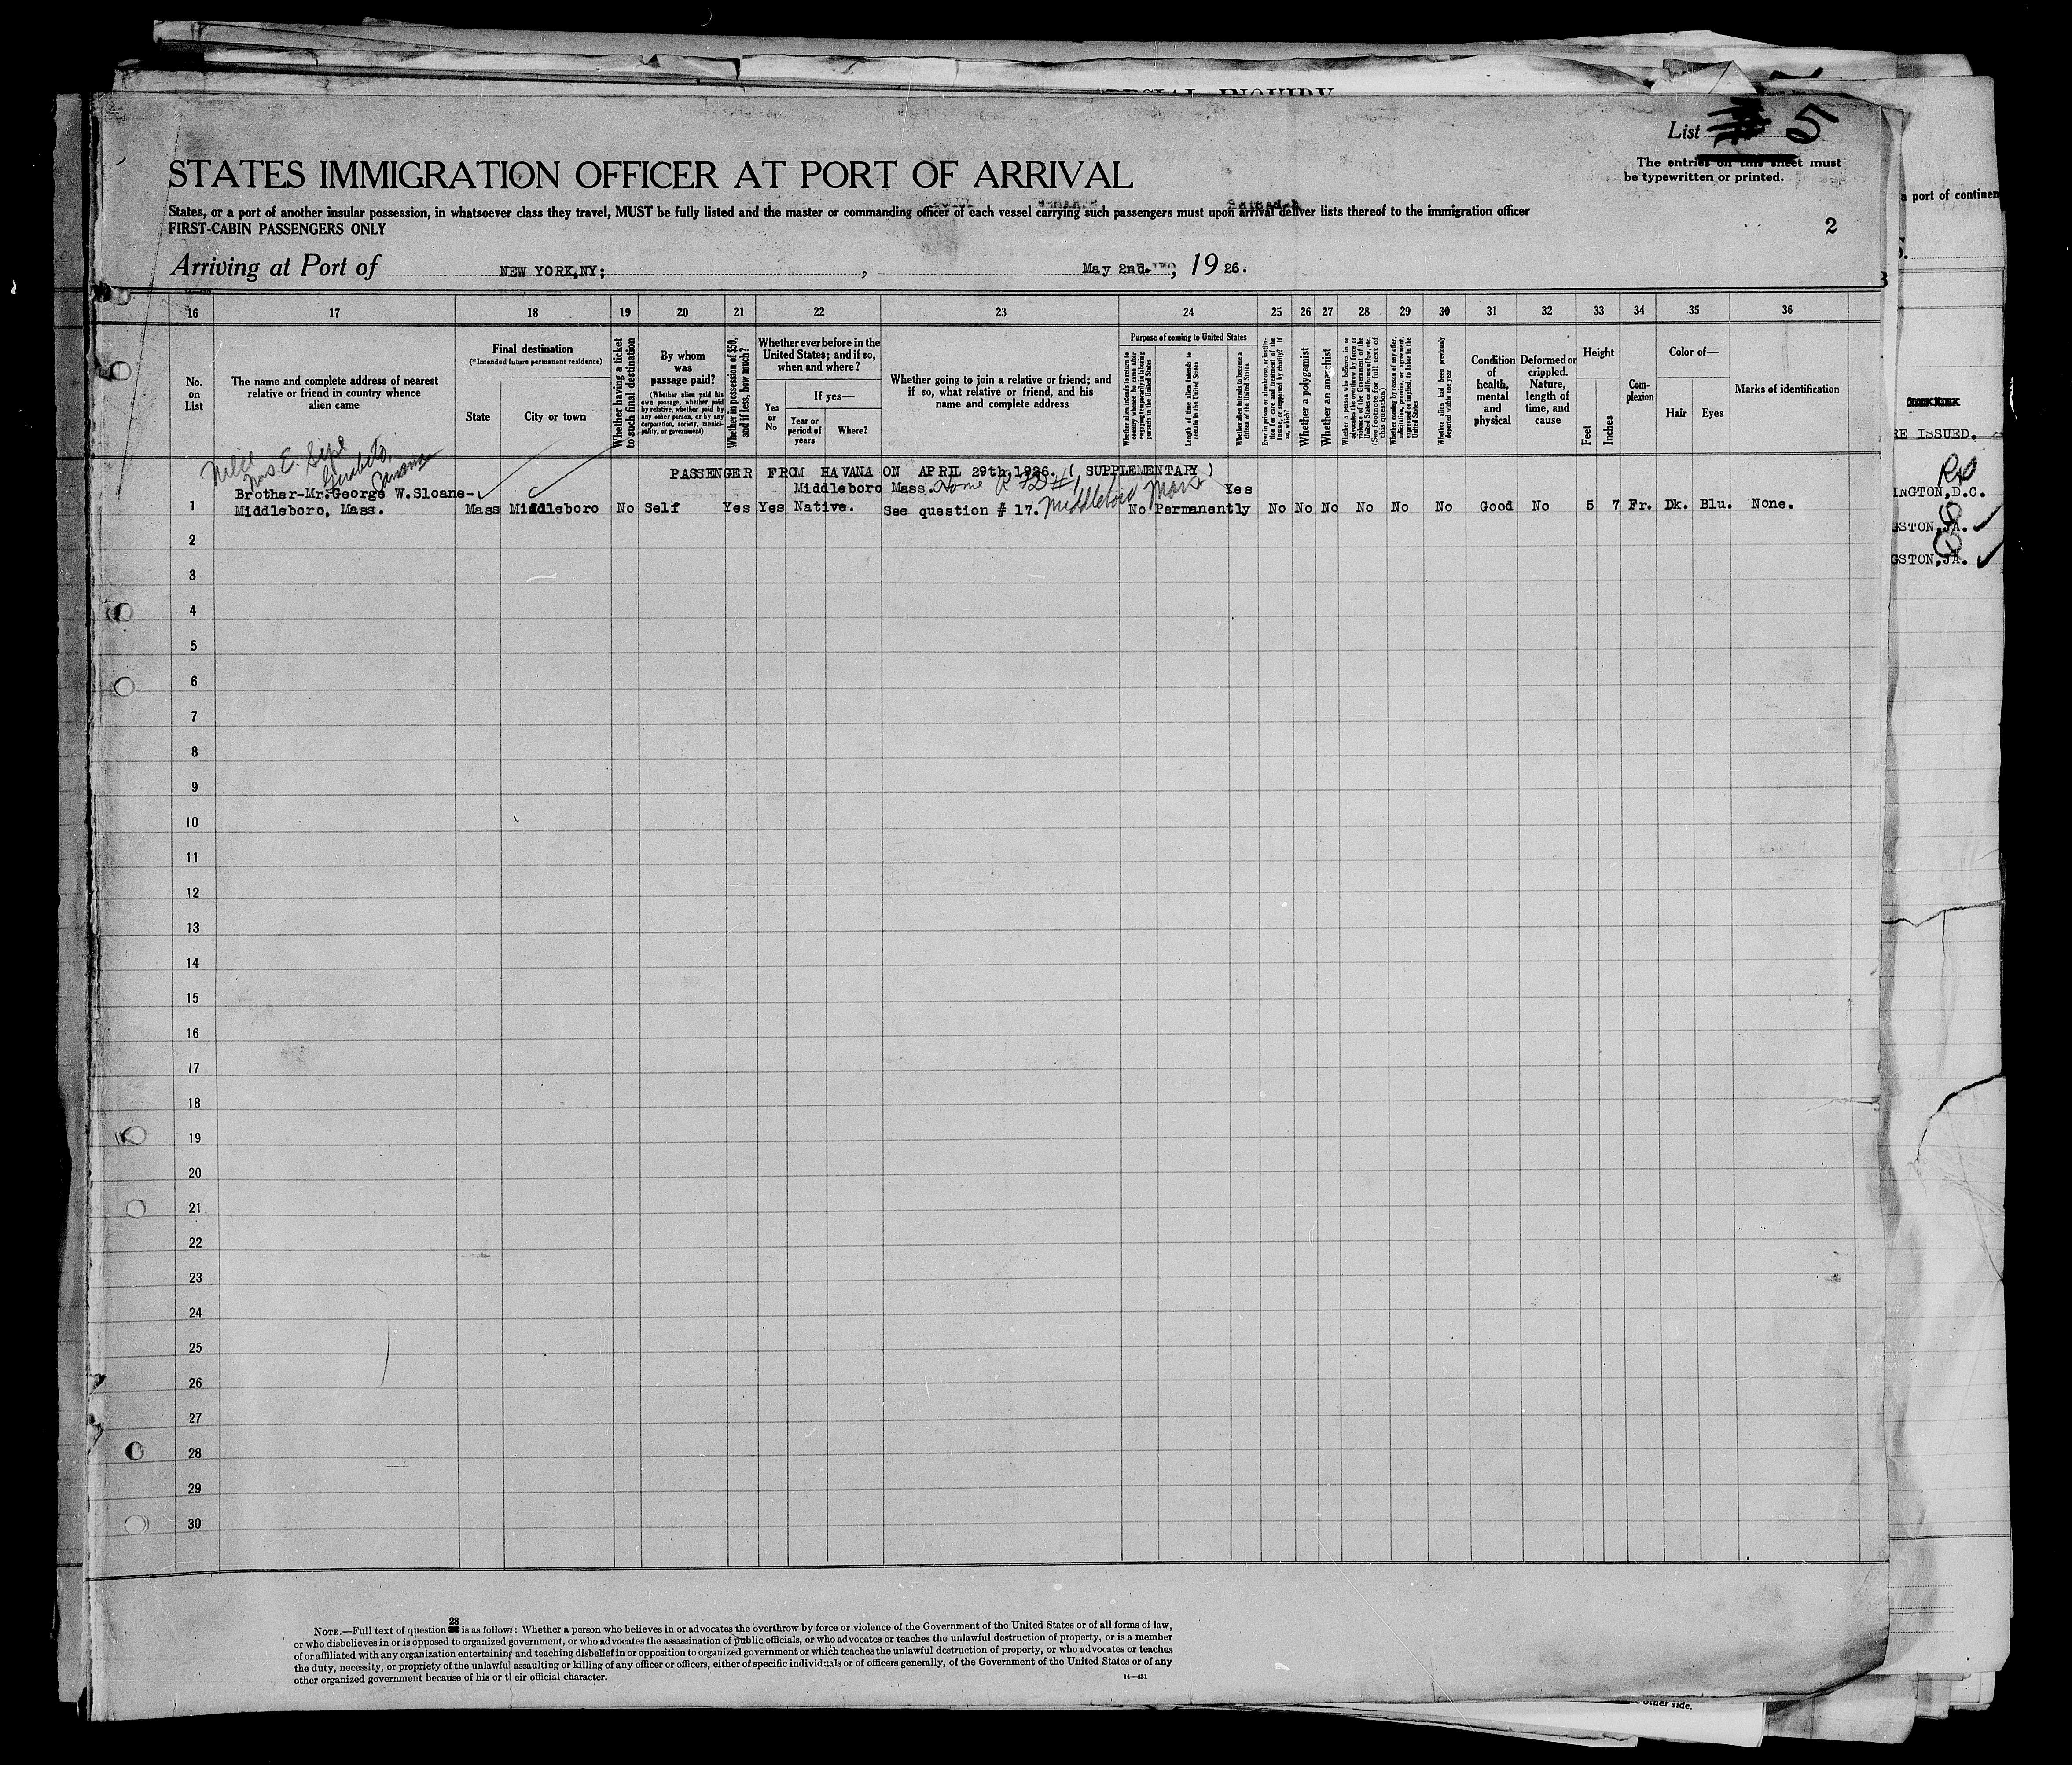 SPECIAL INQUIRY
List 5
The entries on this sheet must
be typewritten or printed.
STATES IMMIGRATION OFFICER AT PORT OF ARRIVAL
States, or a port of another insular possession, in whatsoever class they travel, MUST be fully listed and the master or commanding officer of each vessel carrying such passengers must upon arrival deliver lists thereof to the immigration officer
FIRST-CABIN PASSENGERS ONLY
2
Arriving at Port of NEW YORK,NY; , May 2nd. , 19 26.
16 17 18 19 20 21 22 23 24 25 26 27 28 29 30 31 32 33 34 35 36
No. on List
The name and complete address of nearest relative or friend in country whence alien came
Final destination
(*Intended future permanent residence)
State
City or town
Whether having a ticket to such final destination
By whom was passage paid?
(Whether alien paid his own passage, whether paid by relative, whether paid by any other person, or by any corporation, society, municipality, or government)
Whether in possession of $50, and if less, how much?
Whether ever before in the United States; and if so, when and where?
Yes or No
If yes—
Year or period of years
Where?
Whether going to join a relative or friend; and if so, what relative or friend, and his name and complete address
Purpose of coming to United States
Whether alien intends to return to country whence he came after engaging temporarily in laboring pursuits in the United States
Length of time alien intends to remain in the United States
Whether alien intends to become a citizen of the United States
Ever in prison or almshouse, or institution for care and treatment of the insane, or supported by charity? If so, which?
Whether a polygamist
Whether an anarchist
Whether a person who believes in or advocates the overthrow by force or violence of the Government of the United States or all forms of law, etc. (See Footnote for full text of this question)
Whether coming by reason of any offer, solicitation, promise, or agreement, expressed or implied, to labor in the United States
Whether alien had been previously deported within one year
Condition of health, mental and physical
Deformed or crippled. Nature, length of time, and cause
Height
Feet
Inches
Complexion
Color of—
Hair
Eyes
Marks of identification
PASSENGER FROM HAVANA ON APRIL 29th.1926. ( SUPPLEMENTARY )
Brother-Mr.George W.Sloane-
Middleboro Mass. Home R F D #1 Yes
1 Middleboro, Mass. Mass Middleboro No Self Yes Yes Native. See question # 17. Middleboro Mass No Permanently No No No No No No Good No 5 7 Fr. Dk. Blu. None.
2
3
4
5
6
7
8
9
10
11
12
13
14
15
16
17
18
19
20
21
22
23
24
25
26
27
28
29
30
NOTE.—Full text of question 28 is as follows: Whether a person who believes in or advocates the overthrow by force or violence of the Government of the United States or of all forms of law,
or who disbelieves in or is opposed to organized government, or who advocates the assassination of public officials, or who advocates or teaches the unlawful destruction of property, or is a member
of or affiliated with any organization entertaining and teaching disbelief in or opposition to organized government or which teaches the unlawful destruction of property, or who advocates or teaches
the duty, necessity, or propriety of the unlawful assaulting or killing of any officer or officers, either of specific individuals or of officers generally, of the Government of the United States or of any
other organized government because of his or their official character.
14—431
a port of continen
RE ISSUED.
INGTON,D.C.
GSTON,JA.
GSTON,JA.
other side.